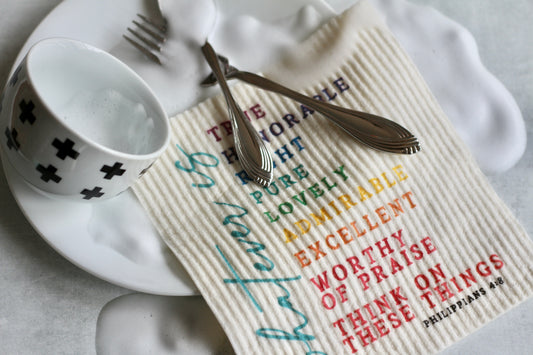 Whatever is
TRUE
HONORABLE
RIGHT
PURE
LOVELY
ADMIRABLE
EXCELLENT
WORTHY
OF PRAISE
THINK ON
THESE THINGS
PHILIPPIANS 4:8